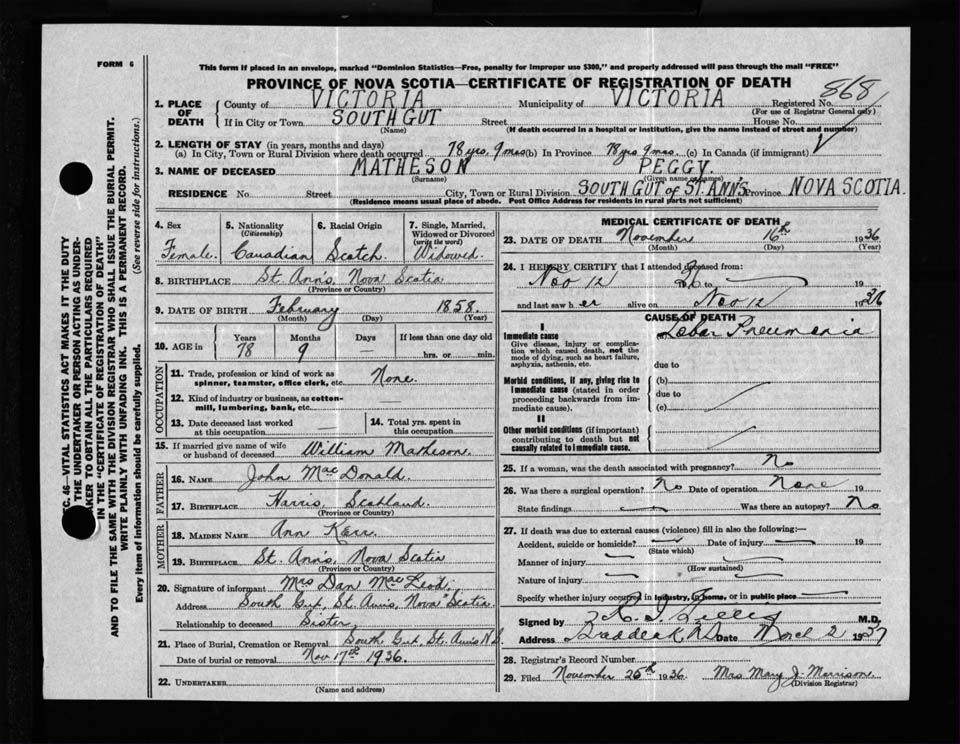 FORM 6
This form if placed in an envelope, marked "Dominion Statistics—Free, penalty for improper use $300," and properly addressed will pass through the mail "FREE"
PROVINCE OF NOVA SCOTIA—CERTIFICATE OF REGISTRATION OF DEATH
868
1. PLACE OF DEATH County of VICTORIA Municipality of VICTORIA Registered No.
(For use of Registrar General only)
If in City or Town SOUTH GUT Street House No.
(Name) (If death occurred in a hospital or institution, give the name instead of street and number)
2. LENGTH OF STAY (in years, months and days)
(a) In City, Town or Rural Division where death occurred 78 yrs, 9 mos (b) In Province 78 yrs 9 mos. (c) In Canada (if immigrant)
3. NAME OF DECEASED MATHESON PEGGY.
(Surname) (Given name or names)
RESIDENCE No. Street City, Town or Rural Division SOUTH GUT of ST. ANN'S Province NOVA SCOTIA.
(Residence means usual place of abode. Post Office Address for residents in rural parts not sufficient)
4. Sex 5. Nationality (Citizenship) 6. Racial Origin 7. Single, Married, Widowed or Divorced (write the word)
Female. Canadian Scotch. Widowed.
8. BIRTHPLACE St. Ann's, Nova Scotia
(Province or Country)
9. DATE OF BIRTH February 1858.
(Month) (Day) (Year)
10. AGE in Years Months Days If less than one day old
78 9 — hrs. or min.
OCCUPATION
11. Trade, profession or kind of work as spinner, teamster, office clerk, etc. None.
12. Kind of industry or business, as cotton-mill, lumbering, bank, etc. —
13. Date deceased last worked at this occupation — 14. Total yrs. spent in this occupation
15. If married give name of wife or husband of deceased William Matheson.
FATHER
16. NAME John MacDonald.
17. BIRTHPLACE Harris, Scotland.
(Province or Country)
MOTHER
18. MAIDEN NAME Ann Kerr.
19. BIRTHPLACE St. Ann's, Nova Scotia
(Province or Country)
20. Signature of informant Mrs Dan MacLeod.
Address South Gut, St. Anns, Nova Scotia.
Relationship to deceased Sister,
21. Place of Burial, Cremation or Removal South Gut, St. Anns N.S.
Date of burial or removal Nov 17th 1936.
22. UNDERTAKER
(Name and address)
MEDICAL CERTIFICATE OF DEATH
23. DATE OF DEATH November 16th 1936
(Month) (Day) (Year)
24. I HEREBY CERTIFY that I attended deceased from:
Nov 12 to 19
and last saw h er alive on Nov 12 1936
CAUSE OF DEATH
I
Immediate cause (a) Lobar Pneumonia
Give disease, injury or complication which caused death, not the mode of dying, such as heart failure, asphyxia, asthenia, etc.
due to
Morbid conditions, if any, giving rise to immediate cause (stated in order proceeding backwards from immediate cause).
(b)
due to
(c)
II
Other morbid conditions (if important) contributing to death but not causally related to immediate cause.
25. If a woman, was the death associated with pregnancy? No
26. Was there a surgical operation? No Date of operation None 19
State findings Was there an autopsy? No
27. If death was due to external causes (violence) fill in also the following:—
Accident, suicide or homicide? Date of injury 19
(State which)
Manner of injury
(How sustained)
Nature of injury
Specify whether injury occurred in industry, in home, or in public place
Signed by M.D.
Address Baddeck N.S. Date March 2 1937
28. Registrar's Record Number
29. Filed November 26th 1936. Mrs Mary J. Morrison.
(Division Registrar)
C. 46—VITAL STATISTICS ACT MAKES IT THE DUTY
THE UNDERTAKER OR PERSON ACTING AS UNDER-
AKER TO OBTAIN ALL THE PARTICULARS REQUIRED
IN THE "CERTIFICATE OF REGISTRATION OF DEATH"
AND TO FILE THE SAME WITH THE DIVISION REGISTRAR WHO SHALL ISSUE THE BURIAL PERMIT.
WRITE PLAINLY WITH UNFADING INK. THIS IS A PERMANENT RECORD.
Every item of information should be carefully supplied. (See reverse side for instructions.)